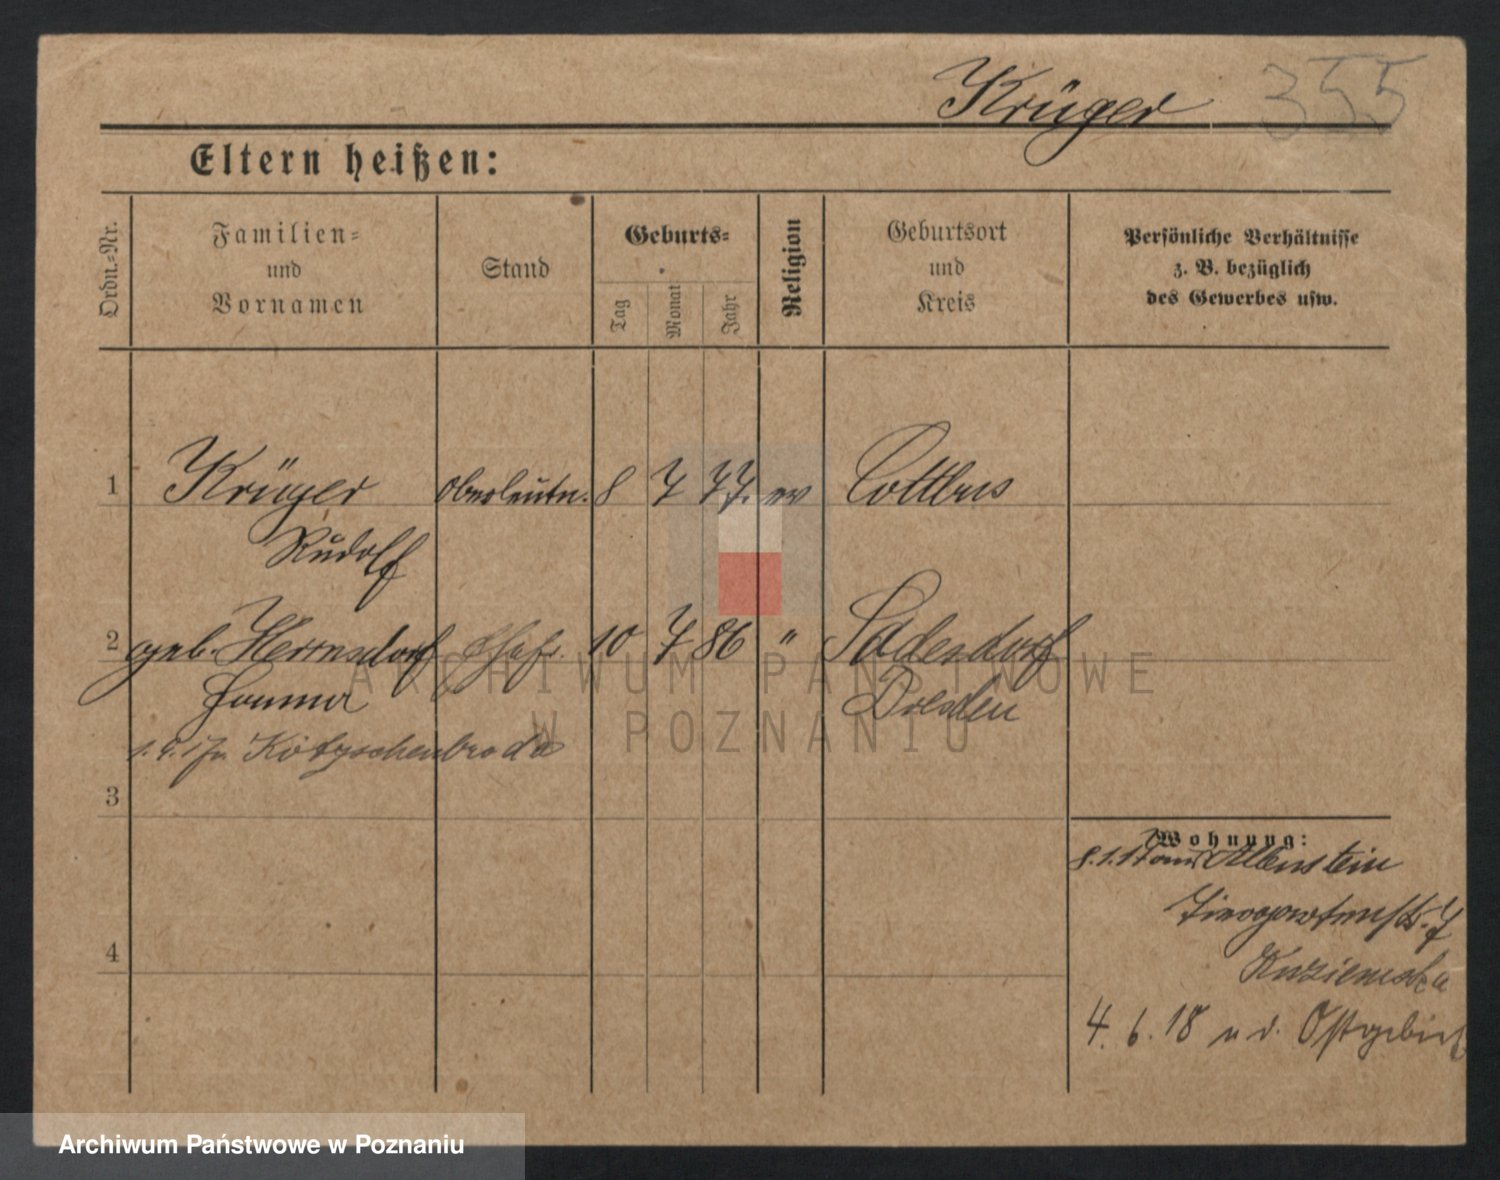 Krüger 355
Eltern heißen:
Ordn.-Nr.
Familien-
und
Vornamen
Stand
Geburts-
Tag
Monat
Jahr
Religion
Geburtsort
und
Kreis
Persönliche Verhältnisse
z. B. bezüglich
des Gewerbes usw.
1 Krüger Oberleutn. 8 7 77. ev Cottbus
Rudolf
2 geb. Herrnsdorf Ehefr. 10 7 86 " Sadersdorf
Hanna Dresden
Kötzschenbroda
3
Wohnung:
8.1.17 aus Allenstein
Tiergartenstr. 7
4
4.6.18 n. d. Ostgebiet
ARCHIWUM PAŃSTWOWE
W POZNANIU
Archiwum Państwowe w Poznaniu